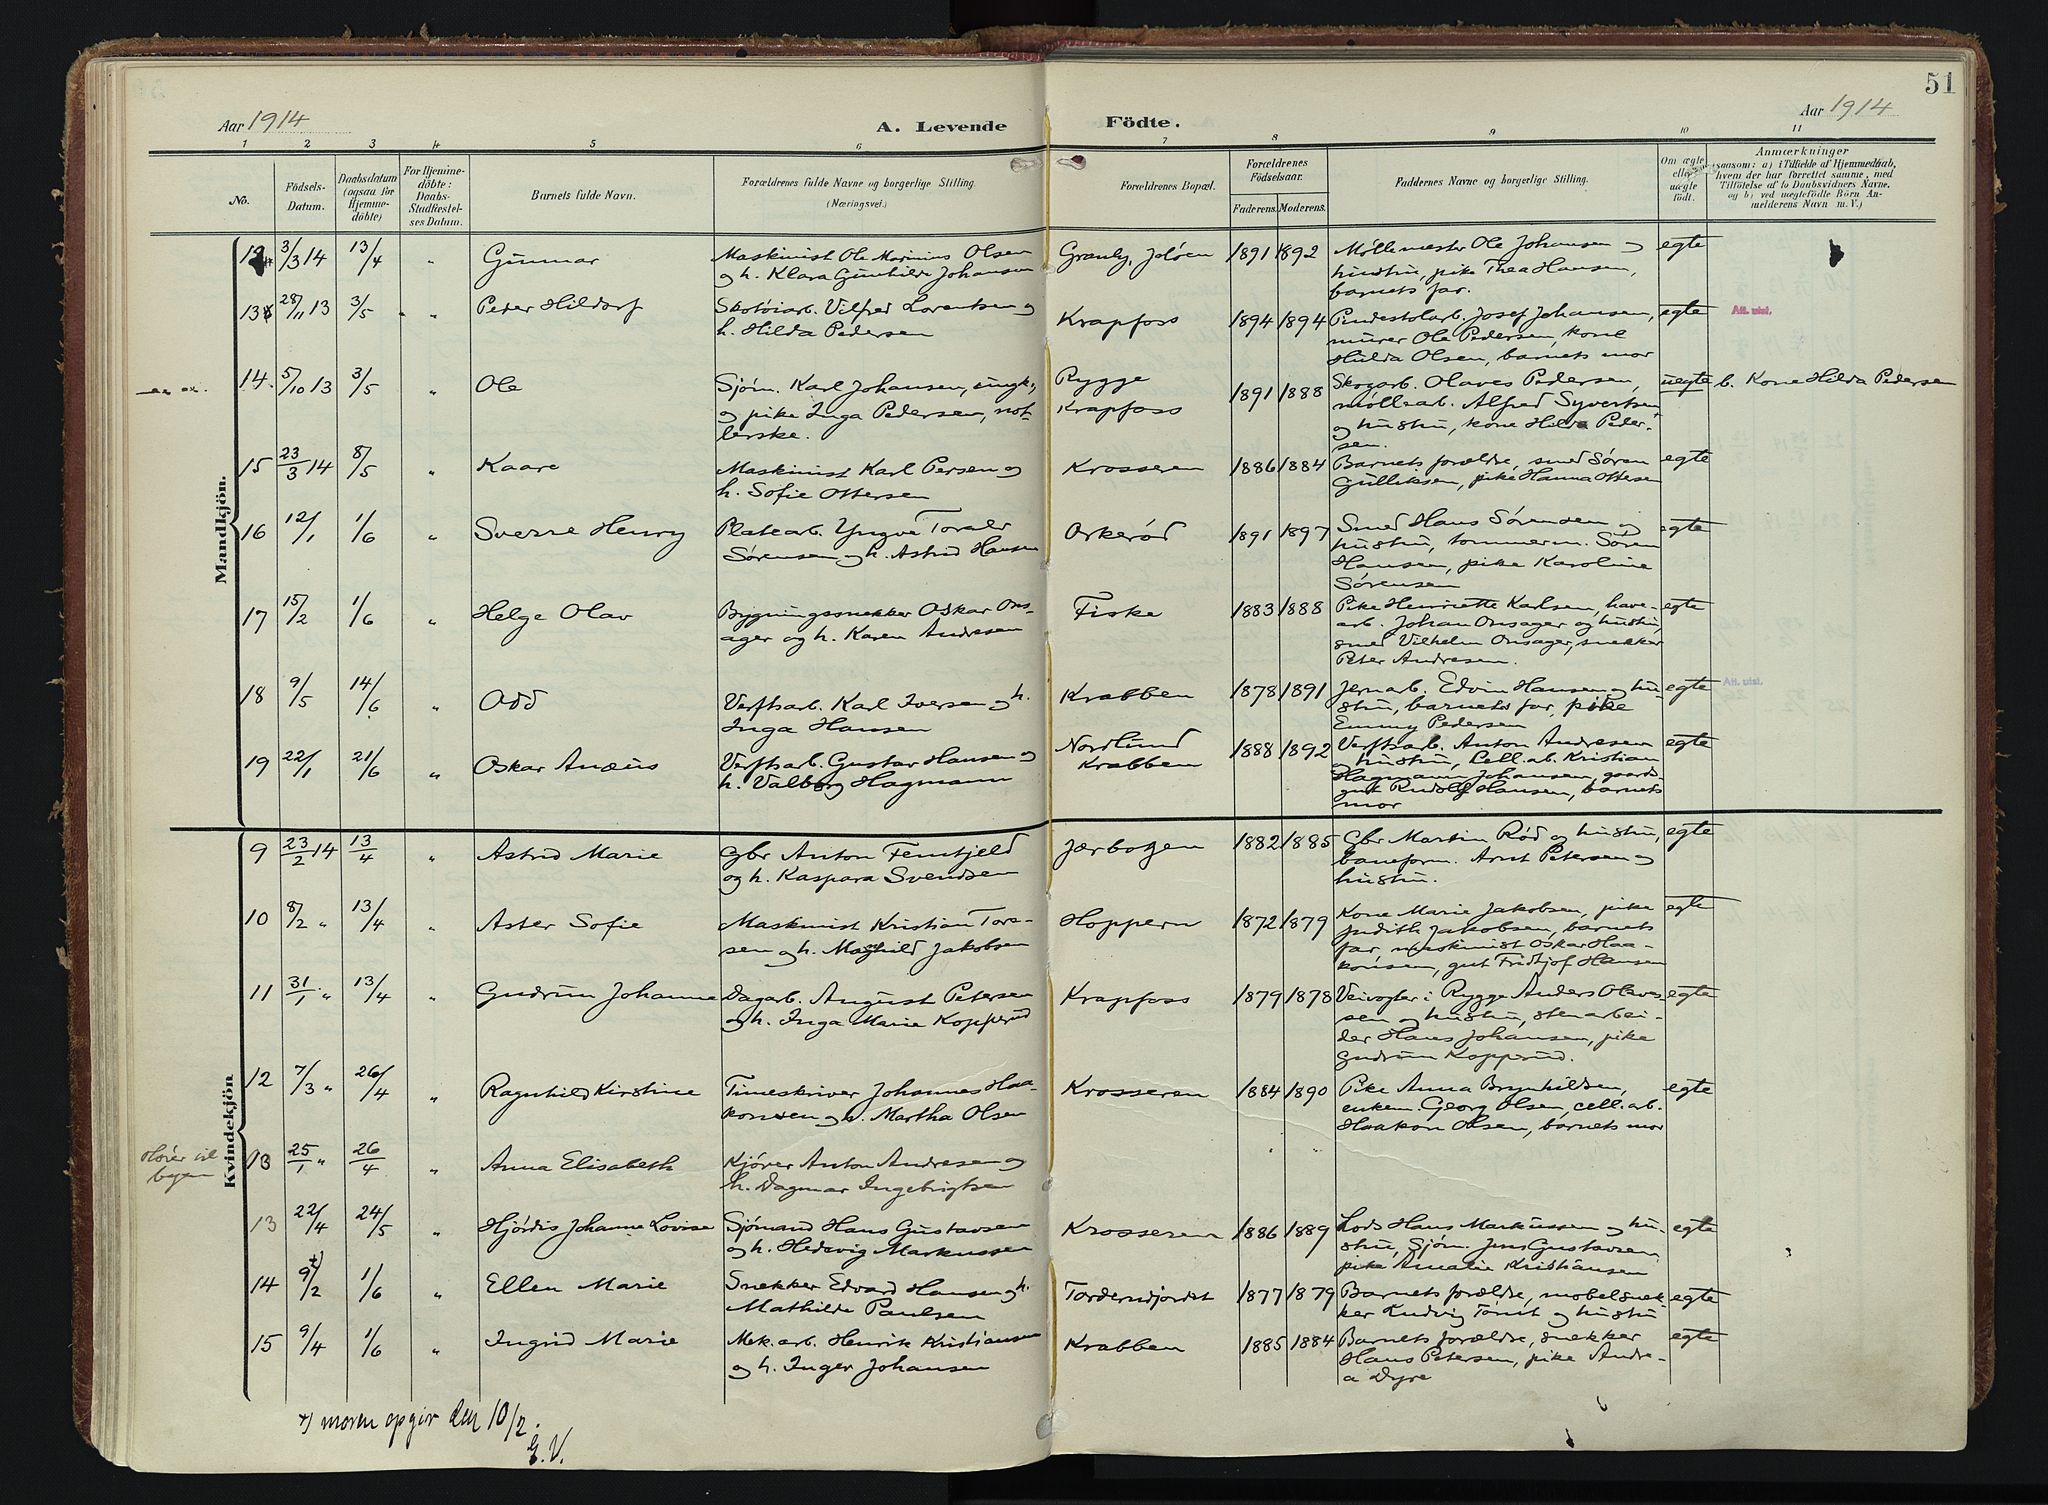 51
Aar 1914
A. Levende Födte.
Aar 1914
1 2 3 4 5 6 7 8 9 10 11
No.
Födsels-
Datum.
Daabsdatum
(ogsaa for
Hjemme-
döbte)
For Hjemme-
döbte:
Daabs-
Stadfæstel-
ses Datum.
Barnets fulde Navn.
Forældrenes fulde Navne og borgerlige Stilling.
(Næringsvei.)
Forældrenes Bopæl.
Forældrenes
Födselsaar.
Faderens. Moderens.
Faddernes Navne og borgerlige Stilling.
Om ægte
eller
uægte
født.
Anmærkninger
(saasom: a) i Tilfælde af Hjemmedaab,
hvem der har forrettet samme, med
Tilföielse af to Daabsvidners Navne,
og b) ved uægtefödte Börn An-
melderens Navn m. V.)
Mandkjön.
12 3/3 14 13/4 " Gunnar
Maskinist Ole Marinius Olsen
og h. Klara Gunhilde Johansen
Grænby, Jeløen 1891 1892
Møllemester Ole Johansen og
hustru, pike Thea Hansen,
barnets far.
egte
13 28/11 13 3/5 " Peder Hildorf
Skotøiarb. Vilfred Lorentsen og
h. Hilda Pedersen
Krapfoss 1894 1894
Pindestolarb. Josef Johansen,
murer Ole Pedersen, kone
Hulda Olsen, barnets mor
egte Att. utst.
14. 5/10 13 3/5 " Ole
Sjøm. Karl Johansen, ungk.,
og pike Inga Pedersen, not-
lerske.
Rygge
Krapfoss
1891 1888
Skogarb. Olaves Pedersen,
møllearb. Alfred Syvertsen
og hustru, kone Hilda Peder-
sen.
uegte b. Kone Hilda Pedersen
15 23/3 14 8/5 " Kaare
Maskinist Karl Persen og
h. Sofie Ottersen
Krosseren 1886 1884
Barnets forældre, smed Søren
Gulliksen, pike Hanna Ottesen
egte
16 12/1 1/6 " Sverre Henry
Platearb. Yngve Torals
Sørensen og h. Astrid Hansen
Orkerød 1891 1897
Smed Hans Sørensen og
hustru, tømmerm. Søren
Hansen, pike Karoline
Sørensen
egte
17 15/2 1/6 " Helge Olav
Bygningssnekker Oskar Ons-
ager og h. Karen Andresen
Fiske 1883 1888
Pike Henriette Karlsen, have-
arb. Johan Onsager og hustru,
smed Vilhelm Onsager, snekker
Peter Andresen.
egte
18 9/5 14/6 " Odd
Verftsarb. Karl Iversen og h.
Inga Hansen
Krabben 1878 1891
Jernarb. Edvin Hansen og hu-
stru, barnets far, pike
Emmy Pedersen
egte Att. utst.
19 22/1 21/6 " Oskar Anæus
Verftsarb. Gustav Hansen og
h. Valborg Hagmann
Nordlund
Krabben
1888 1892
Verftsarb. Anton Andresen
og hustru, Cell.ab. Kristian
Hagmann Johansen, gaards-
gut Rudolf Hansen, barnets
mor
egte
Kvindekjön
9 23/2 14 13/4 " Astrid Marie
Gbr Anton Femtjeld
og h. Kaspara Svendsen
Jærbogen 1882 1885
Gbr Martin Rød og hustru,
baneform. Arnt Petersen og
hustru.
egte
10 8/2 " 13/4 " Aster Sofie
Maskinist Kristian Tore-
sen og h. Maghild Jakobsen
Hoppern 1872 1879
Kone Marie Jakobsen, pike
Judith Jakobsen, barnets
far, maskinist Oskar Haa-
konsen, gut Fridtjof Hansen
egte
11 31/1 " 13/4 " Gudrun Johanne
Dagarb. August Petersen
og h. Inga Marie Kopperud
Krapfoss 1879 1878
Veivogter i Rygge Anders Olaves-
sen og hustru, stenarbei-
der Hans Johansen, pike
Gudrun Kopperud.
egte
12 7/3 " 26/4 " Ragnhild Kirstine
Timeskriver Johannes Haa-
konsen og h. Martha Olsen
Krosseren 1884 1890
Pike Anna Brynhildsen,
enkem. Georg Olsen, cell.ab.
Haakon Olsen, barnets mor
egte
Hører til
byen
13 25/1 " 26/4 " Anna Elisabeth
Kjører Anton Andresen og
h. Dagmar Ingebrigtsen
13 22/4 24/5 " Hjørdis Johanne Lovise
Sjømand Hans Gustavsen
og h. Hedevig Markussen
Krosseren 1886 1889
Lods Hans Markussen og hu-
stru, Sjøm. Jens Gustavsen,
pike Amalie Kristiansen
egte
14 9/2 x) 1/6 " Ellen Marie
Snekker Edvard Hansen og h.
Mathilde Paulsen
Torderndjordet 1877 1879
Barnets forældre, møbelsnek-
ker Ludvig Tørnt og hustru
egte
15 9/4 1/6 " Ingrid Marie
Mek.arb. Henrik Kristiansen
og h. Inger Johansen
Krabben 1885 1884
Barnets forældre, snekker
Hans Petersen, pike Andre-
a Dyre
egte
x) moren opgir den 10/2.
G.V.